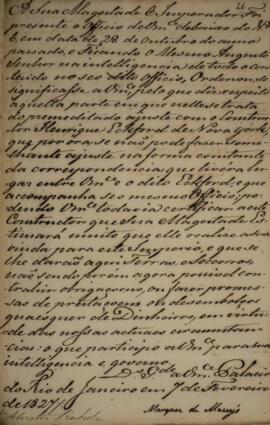 26
A Sua Magestade O Imperador foi
presente o Officio de Vm.ce debaixo do N.º
6, em data de 28 de Outubro do anno
passado, e Ficando O Mesmo Augusto
Senhor na intelligencia de todo o con-
teúdo no seo dito Officio, Ordenou-
significasse a Vm.ce pelo que diz respeito
áquella parte em que nelle se trata
do premeditado ajuste com o Constru-
ctor Henrique Eckford de Nova York,
que por ora se não pode fazer seme-
lhante ajuste na forma constante
da correspondencia que tivera lu-
gar entre Vm.ce e o dito Eckford, e que
acompanha se o mesmo Officio; po-
dendo Vm.ce todavia certificar a este
Constructor que Sua Magestade Es-
timará muito que elle realize a sua
vinda para este Imperio, e que se
lhe darão aqui Terras, e Socorros,
não sendo porém agora possivel con-
trahir obrigaçoens, ou fazer promes-
sas de prestaçoens ou desembolços
quaesquer de Dinheiro, em virtu-
de das nossas actuaes circunstan-
cias: o que participo a Vm.ce para sua
intelligencia e governo.
D.s G.de a Vm.ce Palacio
do Rio de Janeiro em 7 de Fevereiro
de 1827
Marquez de Maceyó